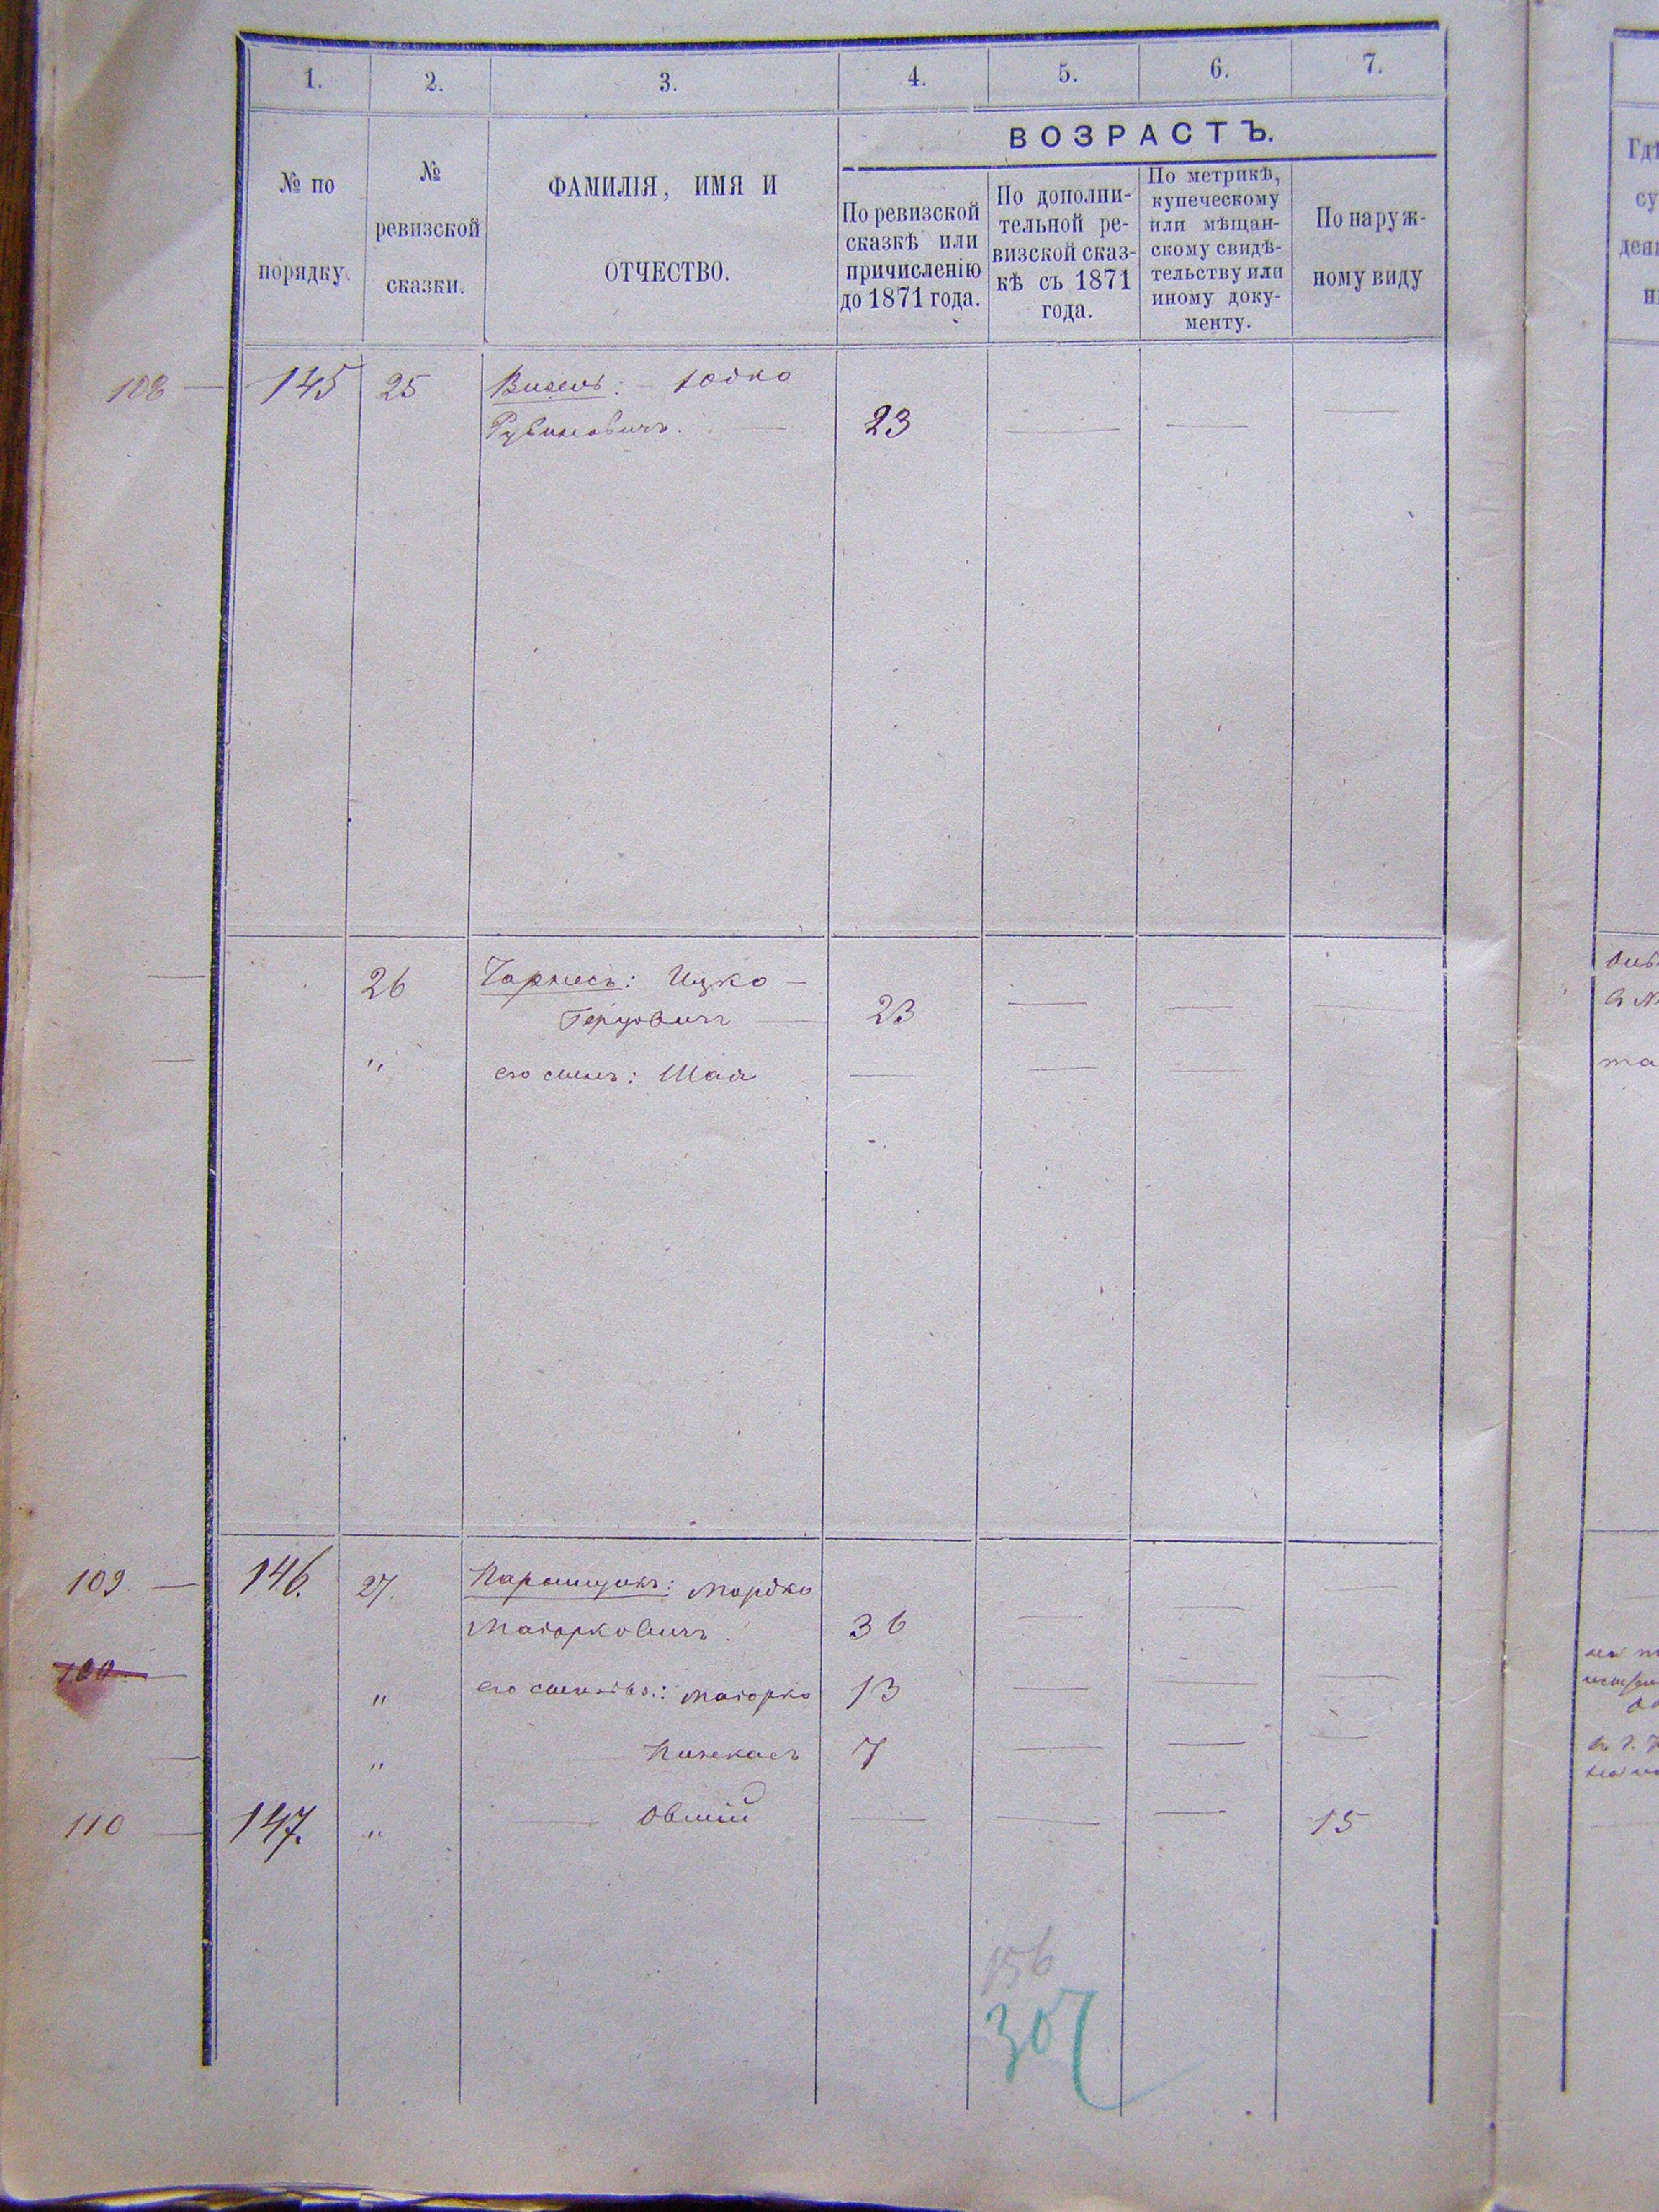 1. 2. 3. 4. 5. 6. 7.
№ по порядку.
№ ревизской сказки.
ФАМИЛІЯ, ИМЯ И ОТЧЕСТВО.
ВОЗРАСТЪ.
По ревизской сказкѣ или причисленію до 1871 года.
По дополнительной ревизской сказкѣ съ 1871 года.
По метрикѣ, купеческому или мѣщанскому свидѣтельству или иному документу.
По наружному виду
108 — 145 25 Визель: — Іодко
Рубиновичъ. — 23 — — —
26 Чарнесъ: Ицко —
Герцовичъ — 23 — — —
" его сынъ: Шая — — —
109 — 146. 27. Мордко
Маіорковичъ. 36 — — —
" его сыновья: Маіорко 13 — — —
" Пинкасъ 7 — — —
110 — 147. " — Овшій — — — 15
156
307